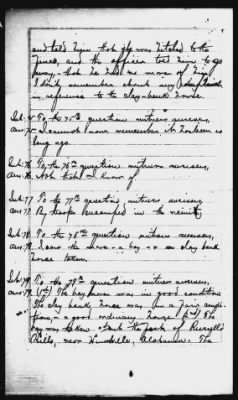 and told him that he was hitched to the
fence, and the officer told him to go
away, that he had no more of him.
I don't remember about any
in reference to the clay-bank horse.
Int. 75 To the 75th question witness answers,
ans. 75 I cannot now remember. It has been so
long ago.
Int. 76 To the 76th question witness answers,
ans. 76 Not that I know of
Int. 77 To the 77th question witness answers,
ans. 77 By troops encamped in the vicinity
Int. 78 To the 78th question witness answers,
ans. 78 I saw the horse - a bay - or a clay bank
horse taken.
Int. 79 To the 79th question witness answers,
ans. 79 (1st) The bay horse was in good condition
The clay bank horse was in a fair condi-
tion, - a good ordinary horse. (2nd) The
bay was taken from the foot of Russell's
Hills, near Huntsville, Alabama. The